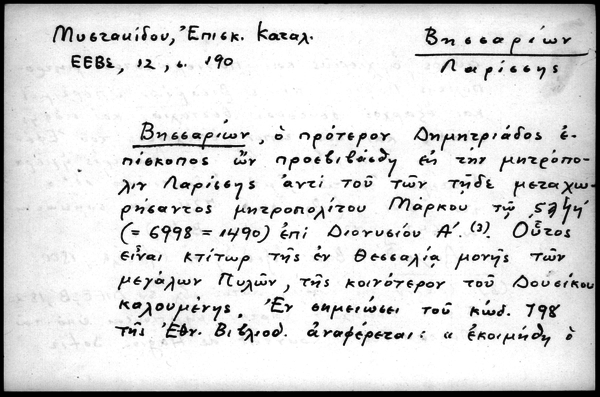 Μυστακίδου, Ἐπισκ. Καταλ.
ΕΕΒΣ, 12, σ. 190
Βησσαρίων
Λαρίσσης
Βησσαρίων, ὁ πρότερον Δημητριάδος ἐ-
πίσκοπος ὢν προεβιβάσθη εἰς τὴν μητρόπο-
λιν Λαρίσσης ἀντὶ τοῦ τῶν τῇδε μεταχω-
ρήσαντος μητροπολίτου Μάρκου τῷ
(= 6998 = 1490) ἐπὶ Διονυσίου Α΄. (3). Οὗτος
εἶναι κτίτωρ τῆς ἐν Θεσσαλίᾳ μονῆς τῶν
μεγάλων Πυλῶν, τῆς κοινότερον τοῦ Δουσίκου
καλουμένης. Ἐν σημειώσει τοῦ κώδ. 798
τῆς Ἐθν. Βιβλιοθ. ἀναφέρεται: « ἐκοιμήθη ὁ